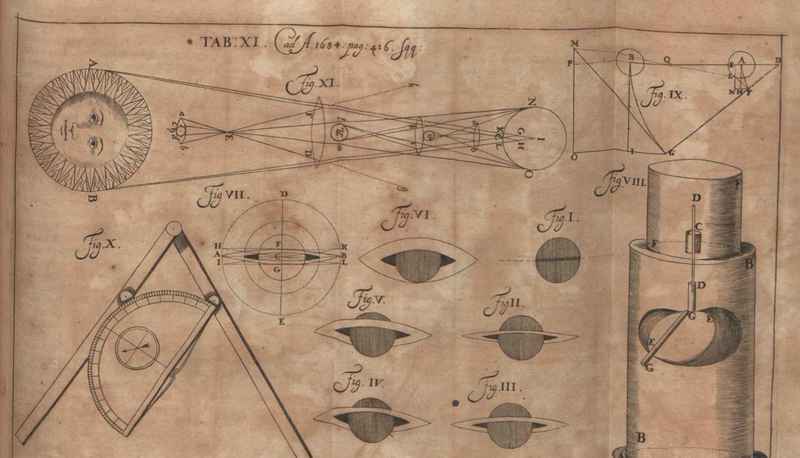 TAB: XI. Cad A 1684. pag: 416. sqq:
Fig. XI.
Fig. IX.
Fig VIII.
Fig VII.
Fig. VI.
Fig. I.
Fig. X.
Fig. V.
Fig II.
Fig. IV.
Fig. III.
A
B
N
O
M
P
S
Q
A
D
O
I
G
D
H
A
I
F
C
G
R
B
L
E
D
C
F
B
D
G
E
G
B